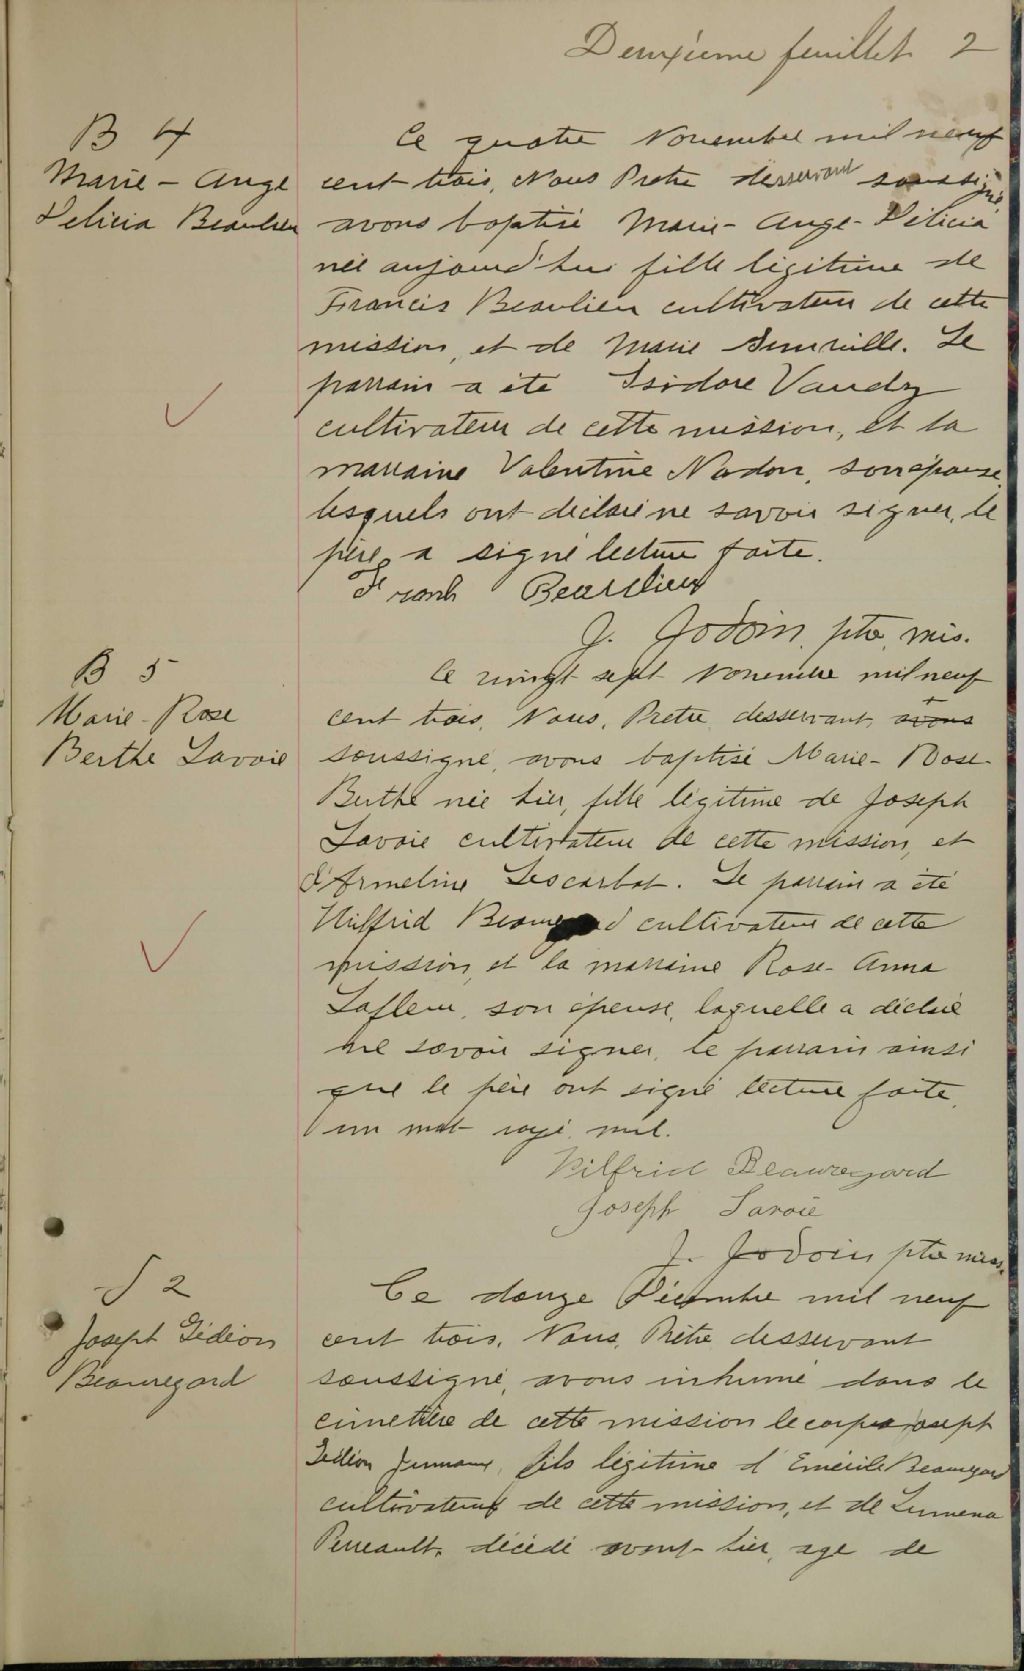 Deuxième feuillet 2
B 4
Marie - Ange
Délicia Beaulieu
Ce quatre Novembre mil neuf
cent trois, Nous Prêtre desservant soussigné
avons baptisé Marie - Ange - Délicia
née aujourd'hui fille légitime de
Francis Beaulieu cultivateur de cette
mission, et de Marie. Le
parrain a été Isidore Vaudry
cultivateur de cette mission, et la
marraine Valentine Nadon, son épouse,
lesquels ont déclaré ne savoir signer, le
père a signé lecture faite.
Frank Beaulieu
J. Jodoin, ptre, mis.
B 5
Marie - Rose
Berthe Lavoie
Ce vingt sept Novembre mil neuf
cent trois, Nous, Prêtre desservant avons
soussigné, avons baptisé Marie - Rose -
Berthe née hier, fille légitime de Joseph
Lavoie cultivateur de cette mission, et
d'Armeline Lescarbot. Le parrain a été
Wilfrid Beauregard cultivateur de cette
mission, et la marraine Rose - Anna
Lafleur, son épouse, laquelle a déclaré
ne savoir signer, le parrain ainsi
que le père ont signé lecture faite,
un mot rayé nul.
Wilfrid Beauregard
Joseph Lavoie
J. Jodoin ptre miss.
S 2
Joseph Gédéon
Beauregard
Ce douze Décembre mil neuf
cent trois, Nous, Prêtre desservant
soussigné, avons inhumé dans le
cimetière de cette mission le corps Joseph
Gédéon, fils légitime d'Emérile Beauregard
cultivateur de cette mission, et de Lumena
Perreault, décédé avant-hier, age de